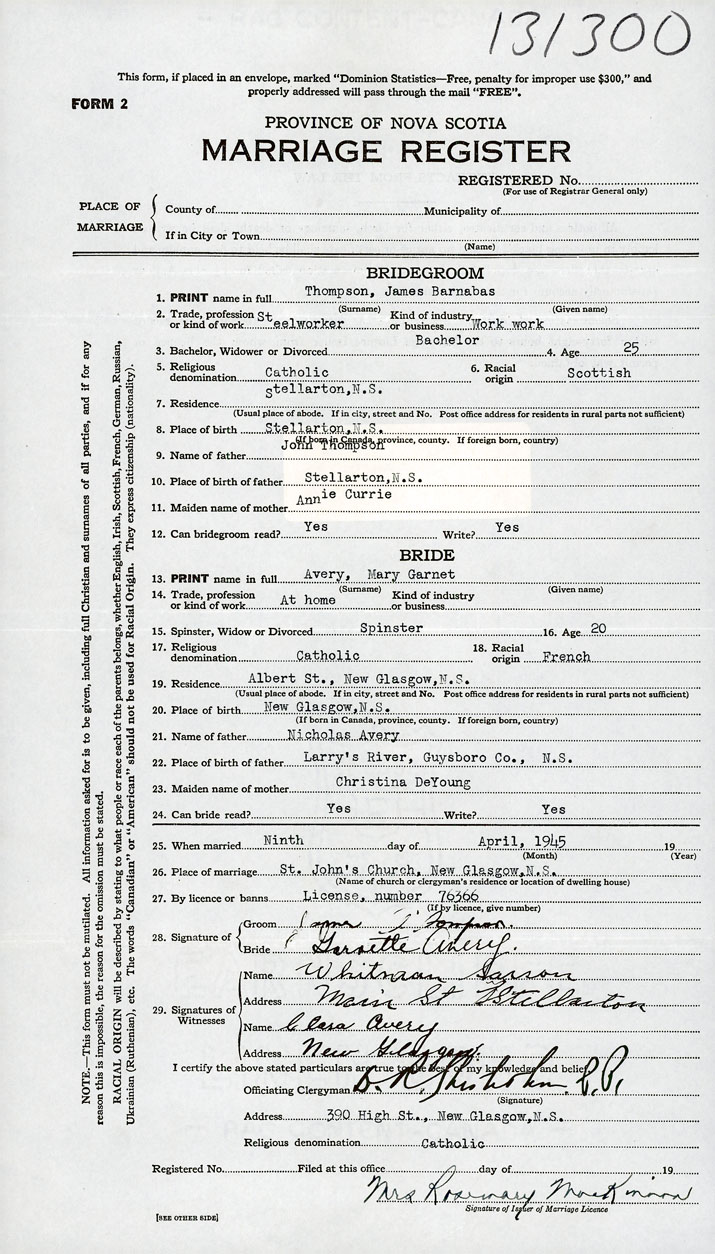 131300
This form, if placed in an envelope, marked "Dominion Statistics—Free, penalty for improper use $300," and
properly addressed will pass through the mail "FREE".
FORM 2
PROVINCE OF NOVA SCOTIA
MARRIAGE REGISTER
REGISTERED No.
(For use of Registrar General only)
PLACE OF MARRIAGE
County of Municipality of
If in City or Town
(Name)
BRIDEGROOM
1. PRINT name in full Thompson, James Barnabas
(Surname) (Given name)
2. Trade, profession or kind of work Steelworker Kind of industry or business Work work
3. Bachelor, Widower or Divorced Bachelor 4. Age 25
5. Religious denomination Catholic 6. Racial origin Scottish
7. Residence Stellarton,N.S.
(Usual place of abode. If in city, street and No. Post office address for residents in rural parts not sufficient)
8. Place of birth Stellarton,N.S.
(If born in Canada, province, county. If foreign born, country)
9. Name of father John Thompson
10. Place of birth of father Stellarton,N.S.
11. Maiden name of mother Annie Currie
12. Can bridegroom read? Yes Write? Yes
BRIDE
13. PRINT name in full Avery, Mary Garnet
(Surname) (Given name)
14. Trade, profession or kind of work At home Kind of industry or business
15. Spinster, Widow or Divorced Spinster 16. Age 20
17. Religious denomination Catholic 18. Racial origin French
19. Residence Albert St., New Glasgow,N.S.
(Usual place of abode. If in city, street and No. Post office address for residents in rural parts not sufficient)
20. Place of birth New Glasgow,N.S.
(If born in Canada, province, county. If foreign born, country)
21. Name of father Nicholas Avery
22. Place of birth of father Larry's River, Guysboro Co., N.S.
23. Maiden name of mother Christina DeYoung
24. Can bride read? Yes Write? Yes
25. When married Ninth day of April, 1945 19
(Month) (Year)
26. Place of marriage St. John's Church, New Glasgow,N.S.
(Name of church or clergyman's residence or location of dwelling house)
27. By licence or banns License, number 76366
(If by licence, give number)
28. Signature of
Groom
Bride Garnette Avery.
29. Signatures of Witnesses
Name Whitman
Address Main St Stellarton
Name Clara Avery
Address New Glasgow.
I certify the above stated particulars are true to the best of my knowledge and belief.
Officiating Clergyman D. R. Chisholm P.P.
(Signature)
Address 390 High St., New Glasgow,N.S.
Religious denomination Catholic
Registered No. Filed at this office day of 19
Mrs Rosemary MacKinnon
Signature of Issuer of Marriage Licence
[SEE OTHER SIDE]
NOTE.—This form must not be mutilated. All information asked for is to be given, including full Christian and surnames of all parties, and if for any
reason this is impossible, the reason for the omission must be stated.
RACIAL ORIGIN will be described by stating to what people or race each of the parents belongs, whether English, Irish, Scottish, French, German, Russian,
Ukrainian (Ruthenian), etc. The words "Canadian" or "American" should not be used for Racial Origin. They express citizenship (nationality).